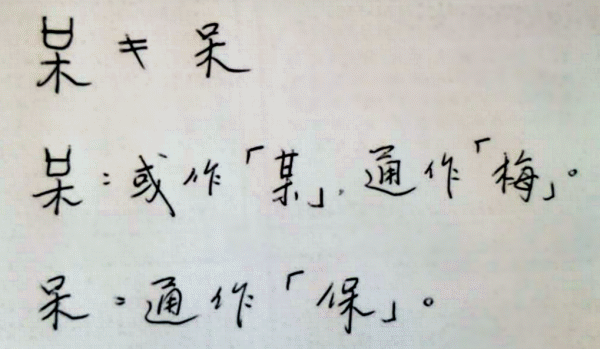 ≠ 呆
：或作「某」，通作「梅」。
呆：通作「保」。